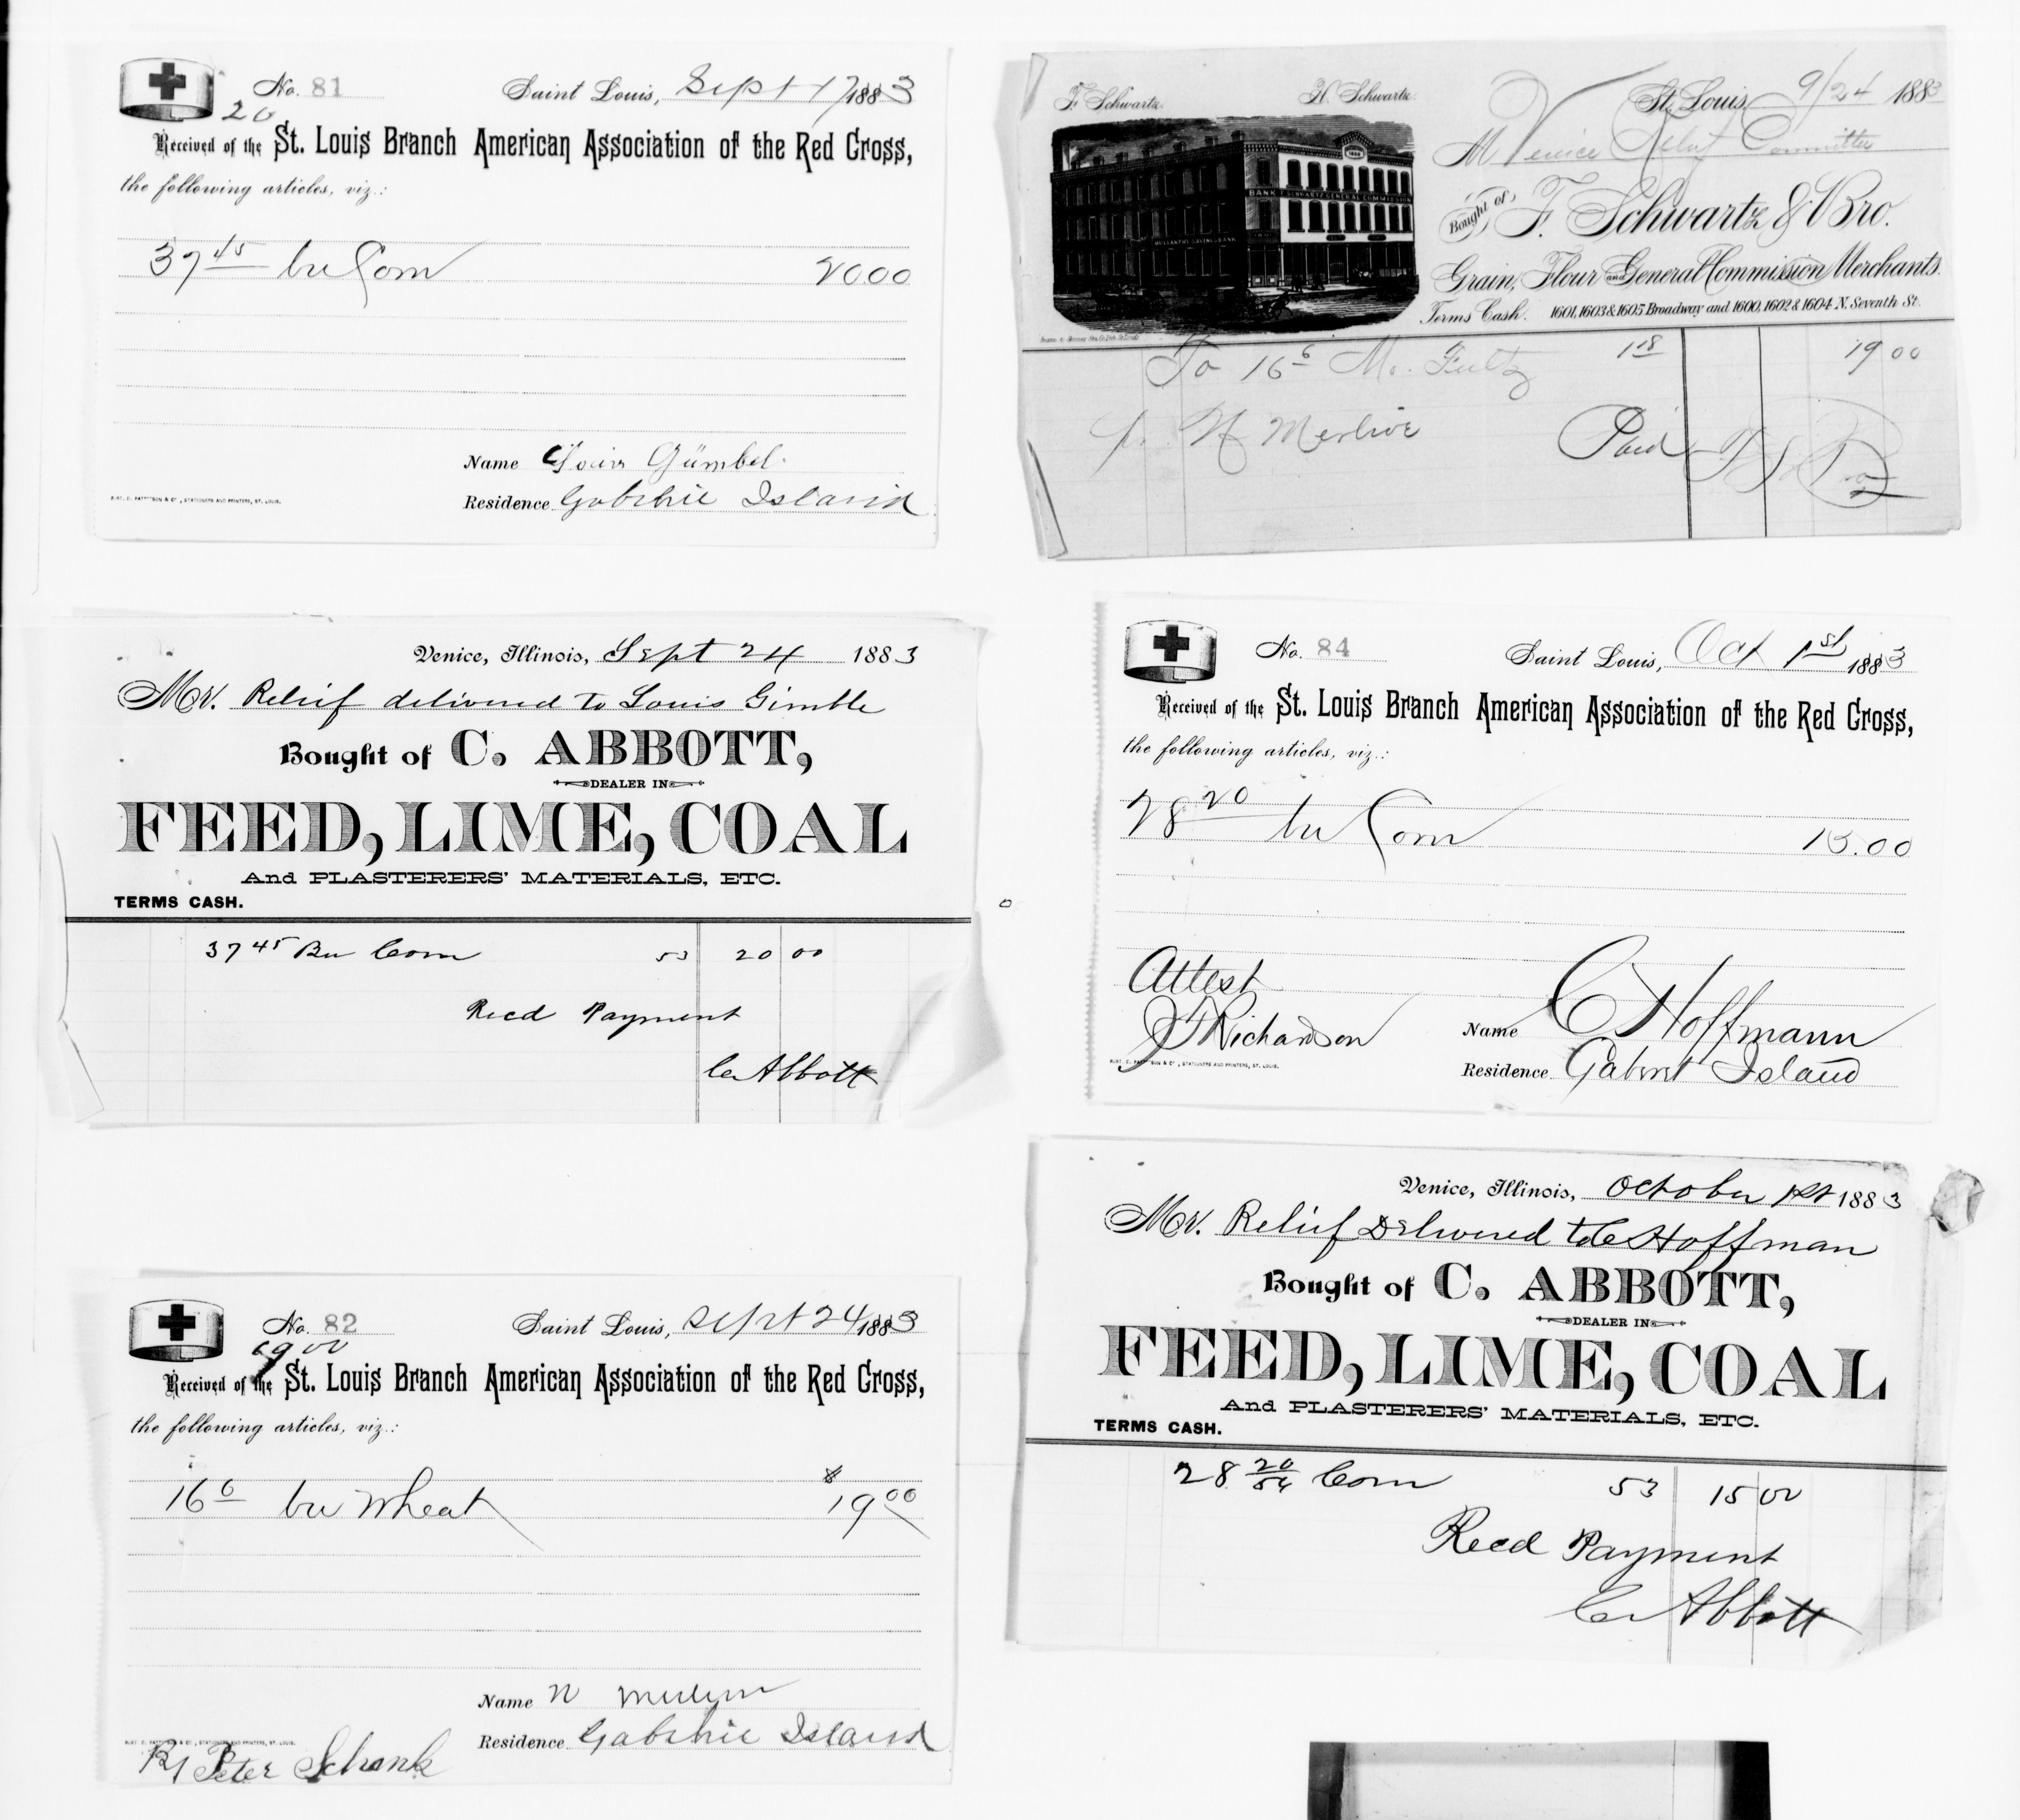 No. 81 Saint Louis, Sept 17 1883
20
Received of the St. Louis Branch American Association of the Red Cross,
the following articles, viz.:
37 45 bu Corn 20.00
Name Louis Gümbel.
Residence Gabrhie Island
F. Schwartz. H. Schwartz.
St. Louis, 9/24 1883
M Venice Relief Committee
Bought of F. Schwartz & Bro.
Grain, Flour and General Commission Merchants.
Terms Cash. 1601, 1603 & 1605 Broadway and 1600, 1602 & 1604 N. Seventh St.
To 16 6 Mo. Fultz 1 18 19 00
Paid
Venice, Illinois, Sept 24 1883
Mr. Relief delivered to Louis Gimble
Bought of C. ABBOTT,
DEALER IN
FEED, LIME, COAL
And PLASTERERS' MATERIALS, ETC.
TERMS CASH.
37 45 Bu Corn 53 20 00
Recd Payment
C Abbott
No. 84 Saint Louis, Oct 1st 1883
Received of the St. Louis Branch American Association of the Red Cross,
the following articles, viz.:
28 20 bu Corn 15.00
Attest
J Richardson
Name C Hoffmann
Residence Gabrot Island
No. 82 Saint Louis, Sept 24 1883
19 00
Received of the St. Louis Branch American Association of the Red Cross,
the following articles, viz.:
16 6 bu Wheat $19 00
Name N
Residence Gabrhie Island
Peter Schenk
Venice, Illinois, October 1st 1883
Mr. Relief Delivered to C Hoffman
Bought of C. ABBOTT,
DEALER IN
FEED, LIME, COAL
And PLASTERERS' MATERIALS, ETC.
TERMS CASH.
28 20/56 Corn 53 15 00
Recd Payment
C Abbott